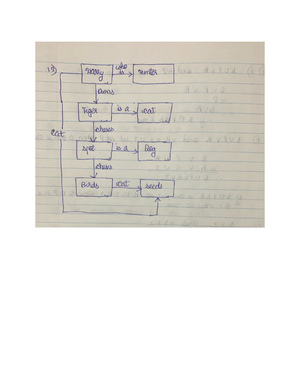 who
is a
owns
Tiger is a cat
chases
eat
spot is a Dog
chases
Birds eat seeds